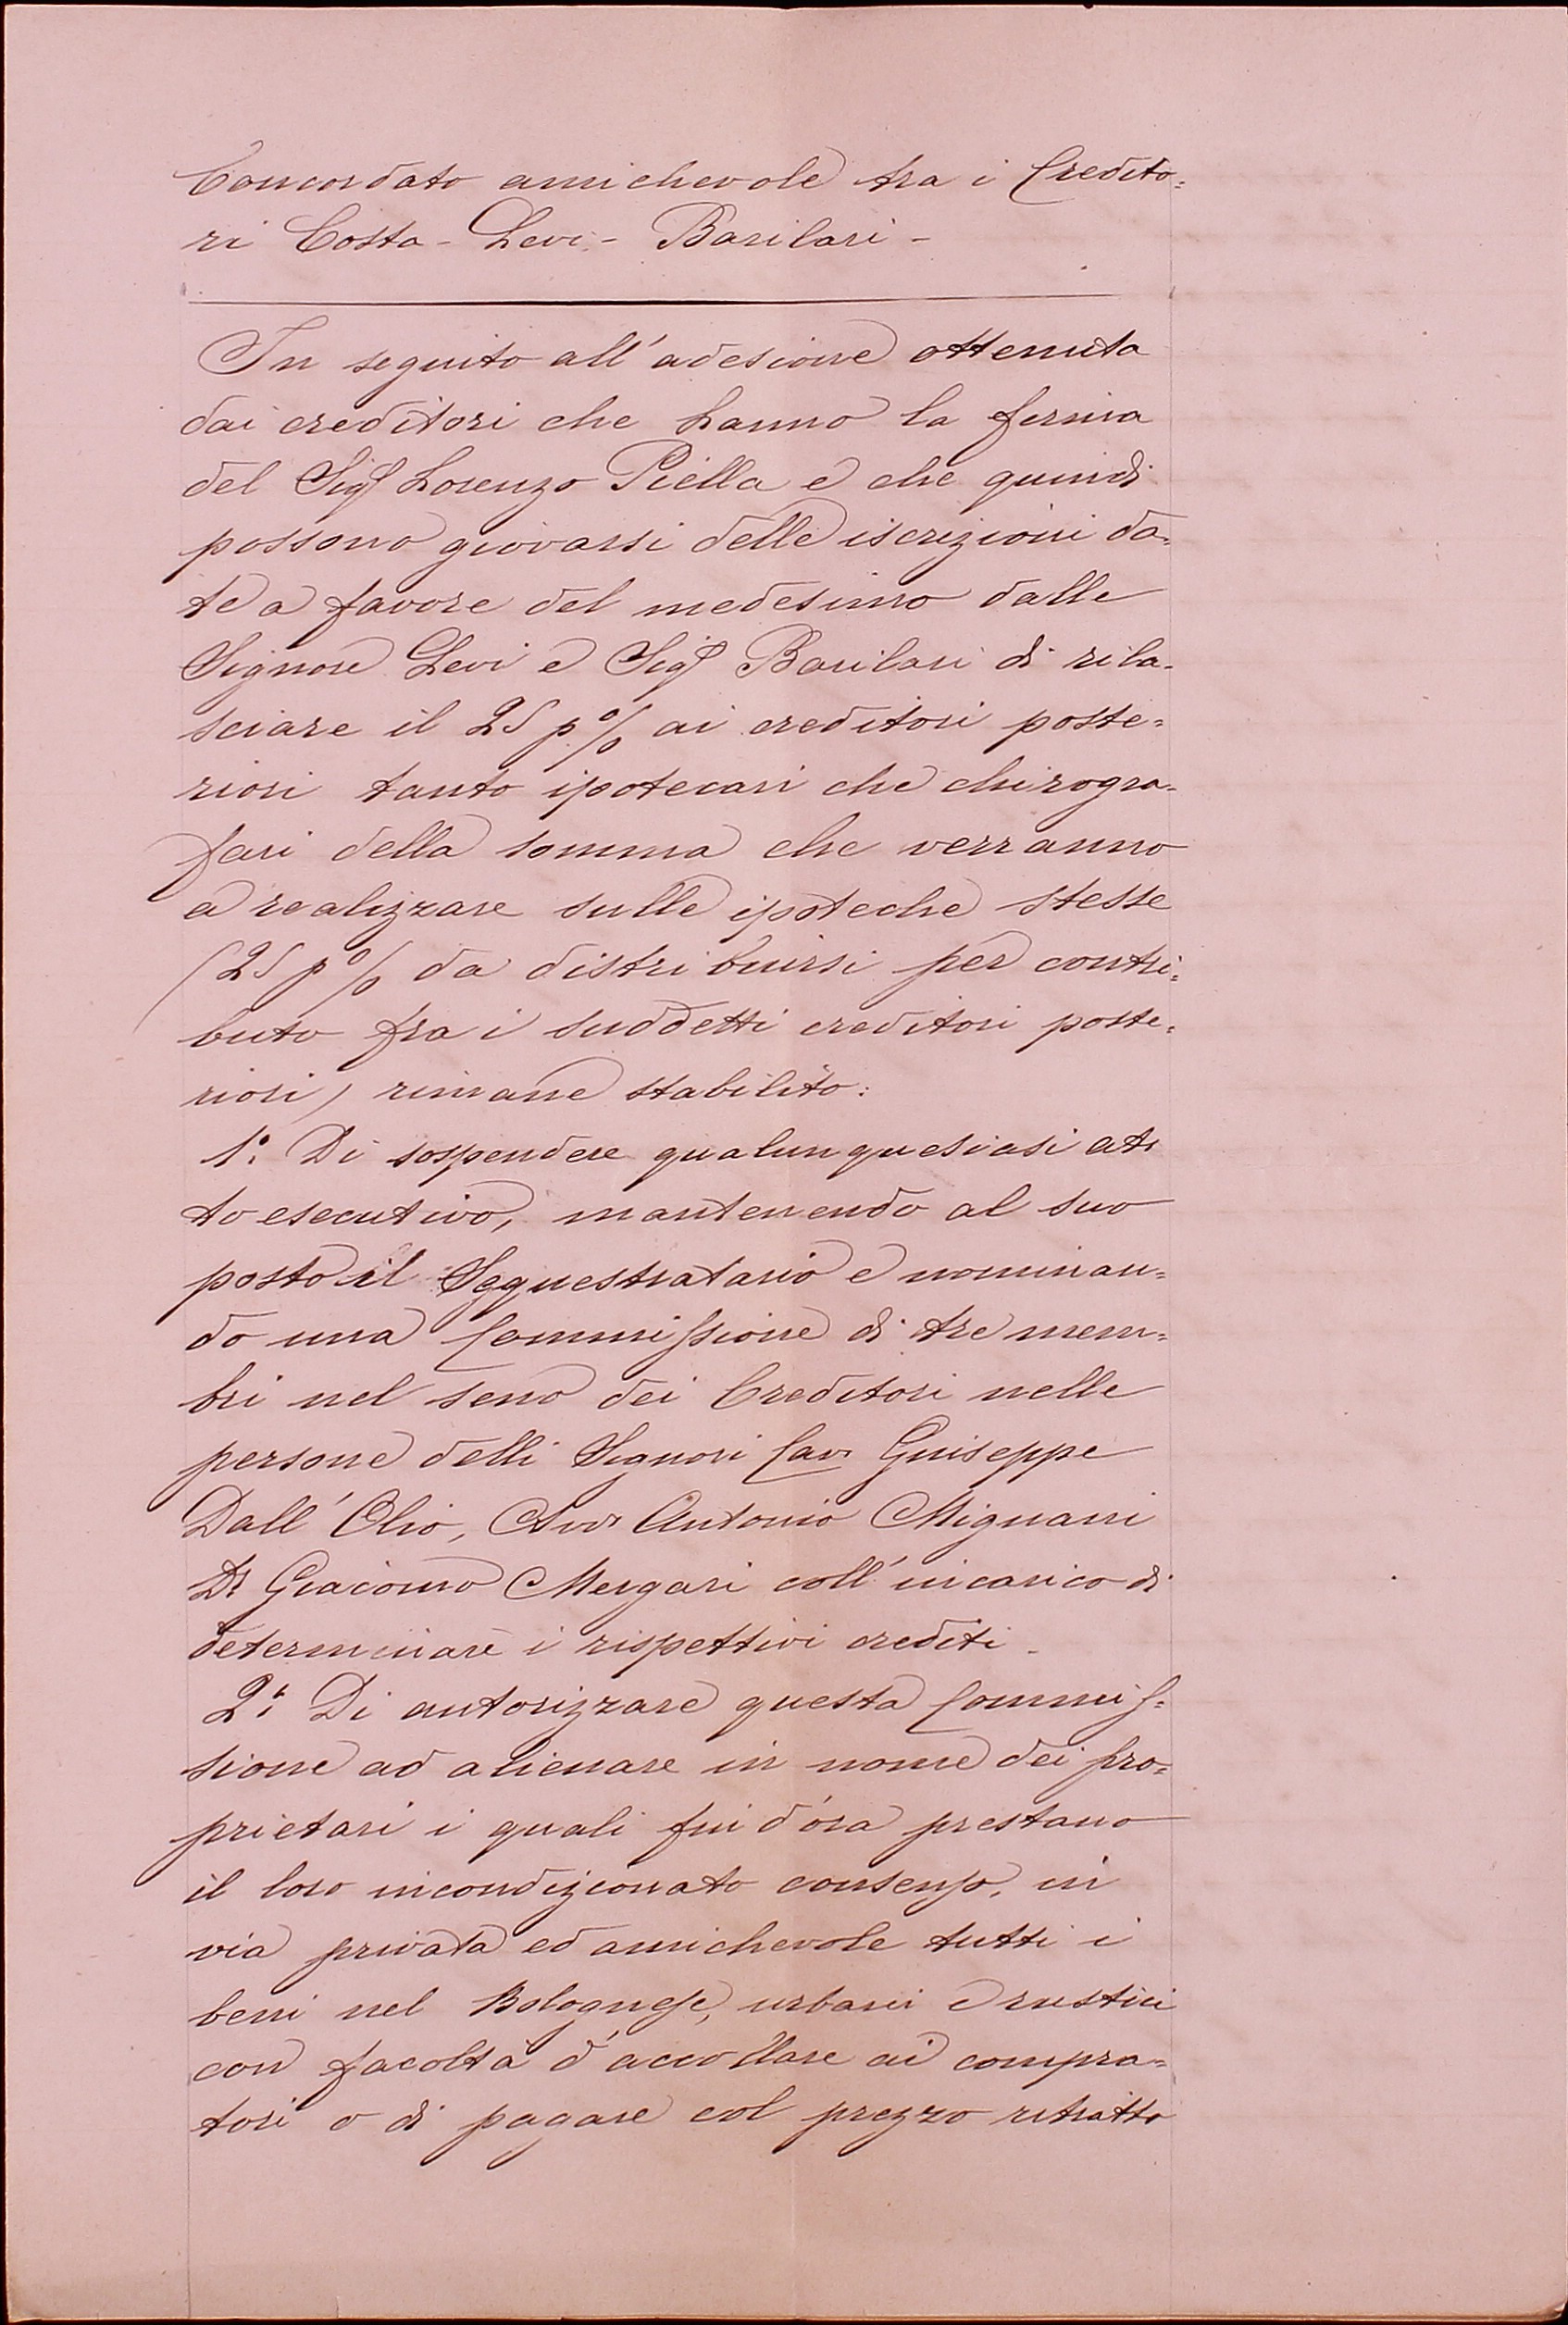 Concordato amichevole tra i Credito=
ri Costa - Levi - Barilari -
In seguito all'adesione ottenuta
dai creditori che hanno la firma
del Sigr Lorenzo Piella e che quindi
possono giovarsi delle iscrizioni da=
te a favore del medesimo dalle
Signore Levi e Sigr Barilari di rila=
sciare il 25 p% ai creditori poste=
riori tanto ipotecari che chirogra=
fari della somma che verranno
a realizzare sulle ipoteche stesse
(25 p% da distribuirsi per contri=
buto fra i suddetti creditori poste=
riori) rimane stabilito:
1º: Di sospendere qualunquesiasi at=
to esecutivo, mantenendo al suo
posto il Sequestratario e nominan=
do una Commissione di tre mem=
bri nel seno dei Creditori nelle
persone delli Signori Cav Giuseppe
Dall'Olio, Avv Antonio Mignani
Dr Giacomo Mengari coll'incarico di
determinare i rispettivi crediti -
2º: Di autorizzare questa Commis=
sione ad alienare in nome dei pro=
prietari i quali fin d'ora prestano
il loro incondizionato consenso, in
via privata ed amichevole tutti i
beni nel Bolognese, urbani e rustici
con facoltà d'accollare ai compra=
tori o di pagare col prezzo ritratto